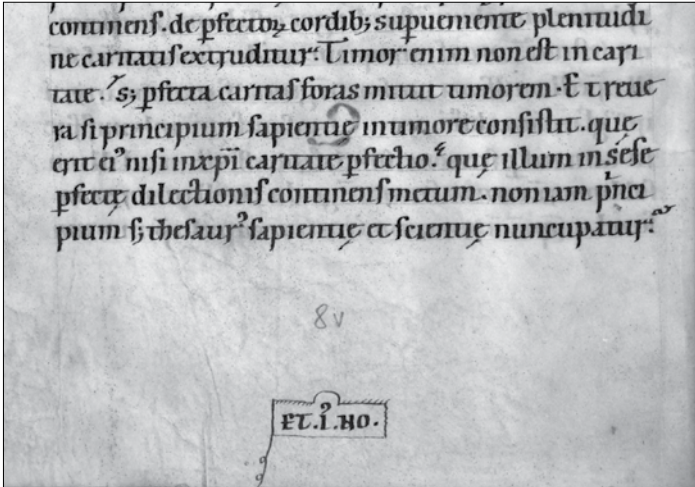 continenſ. de ꝑfectoꝝ cordibꝫ suꝑuenientẽ plenitudi
ne caritatiſ extruditur: Timor enim non eſt in cari
tate. sꝫ ꝑfecta caritaſ foras mittit timorem. Et reue
ra ſi principium ſapientię in timore conſiſtit. quę
erit ei᾽ niſi in xp̄i caritate ꝑfectio. quę illum in seſe
ꝑfectę dilectioniſ continenſ metum. non iam pͥnci
pium ſꝫ theſaur᾽ ſapientię et ſcientię nuncupatur.
8v
ET.I᾽.HO.